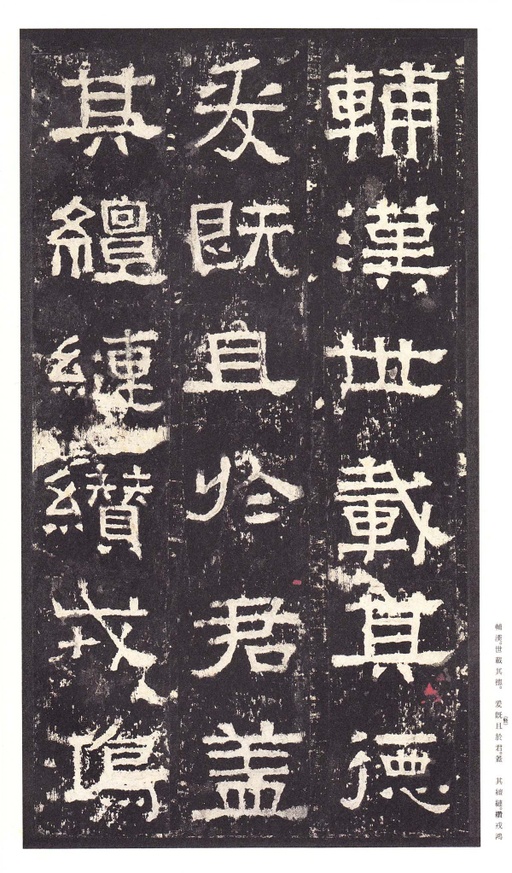 輔漢世載其德
爰既且於君盖
其繵縺纘戎鴻
輔漢世載其德 爰既且於君蓋 其繵縺纘戎鴻